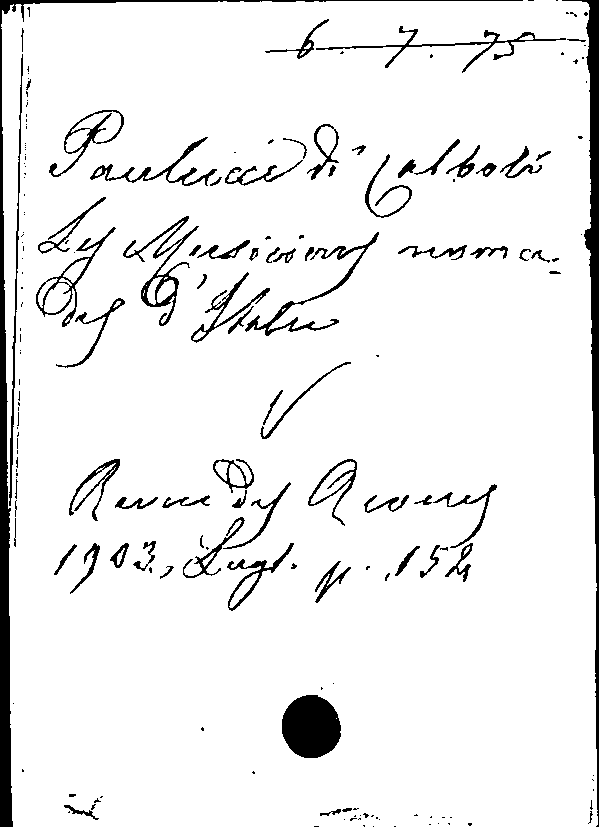 6. 7. 75
Paulucci di Calboli
Les Musiciens noma-
des d'Italie
Revue des Revues
1903, Lugl. p. 152